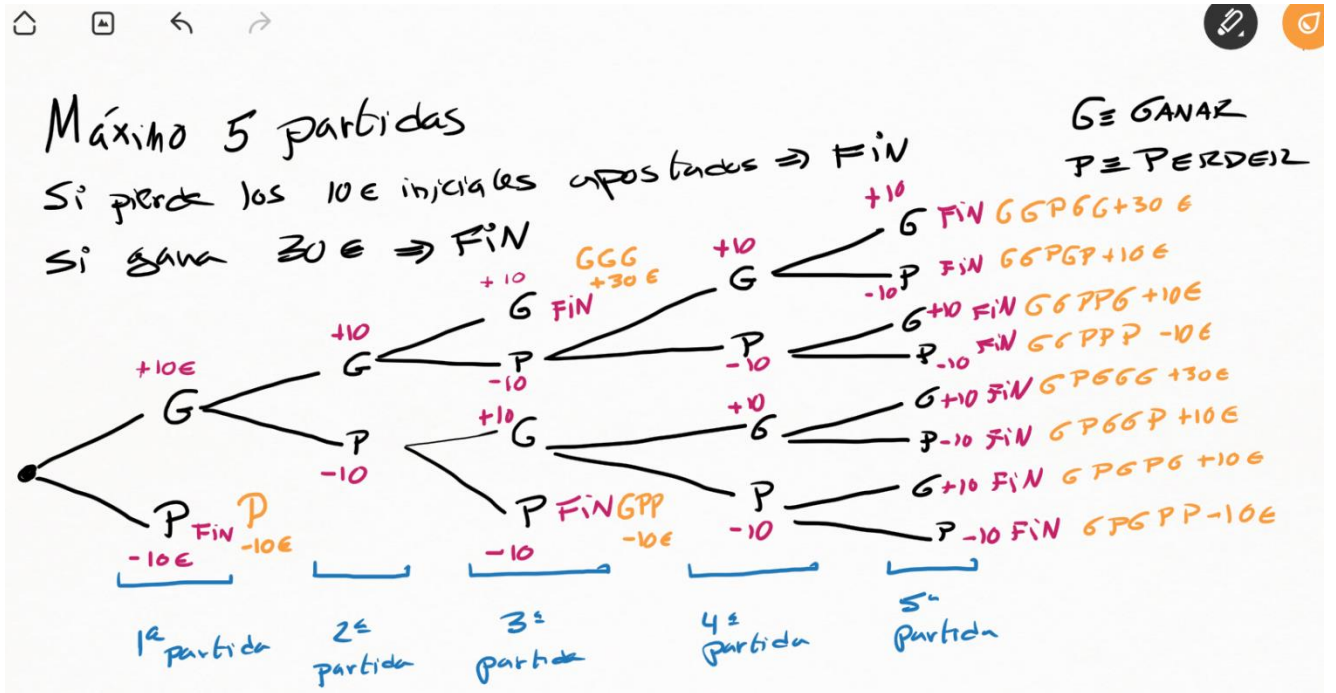 Máximo 5 partidas
Si pierde los 10€ iniciales apostados ⇒ FiN
Si gana 30€ ⇒ FiN
G≡ GANAR
P≡ PERDER
+10€
G
P FiN P
-10€ -10€
+10
G
P
-10
+10 GGG
G FiN +30€
P
-10
+10
G
P FiN GPP
-10 -10€
+10
G
P
-10
+10
G
P
-10
+10
G FiN GGPGG+30€
-10 P FiN GGPGP+10€
G+10 FiN GGPPG+10€
P-10 FiN GGPPP -10€
G+10 FiN GPGGG +30€
P-10 FiN GPGGP +10€
G+10 FiN GPGPG +10€
P-10 FiN GPGPP-10€
1ª partida
2ª partida
3ª partida
4ª partida
5ª partida